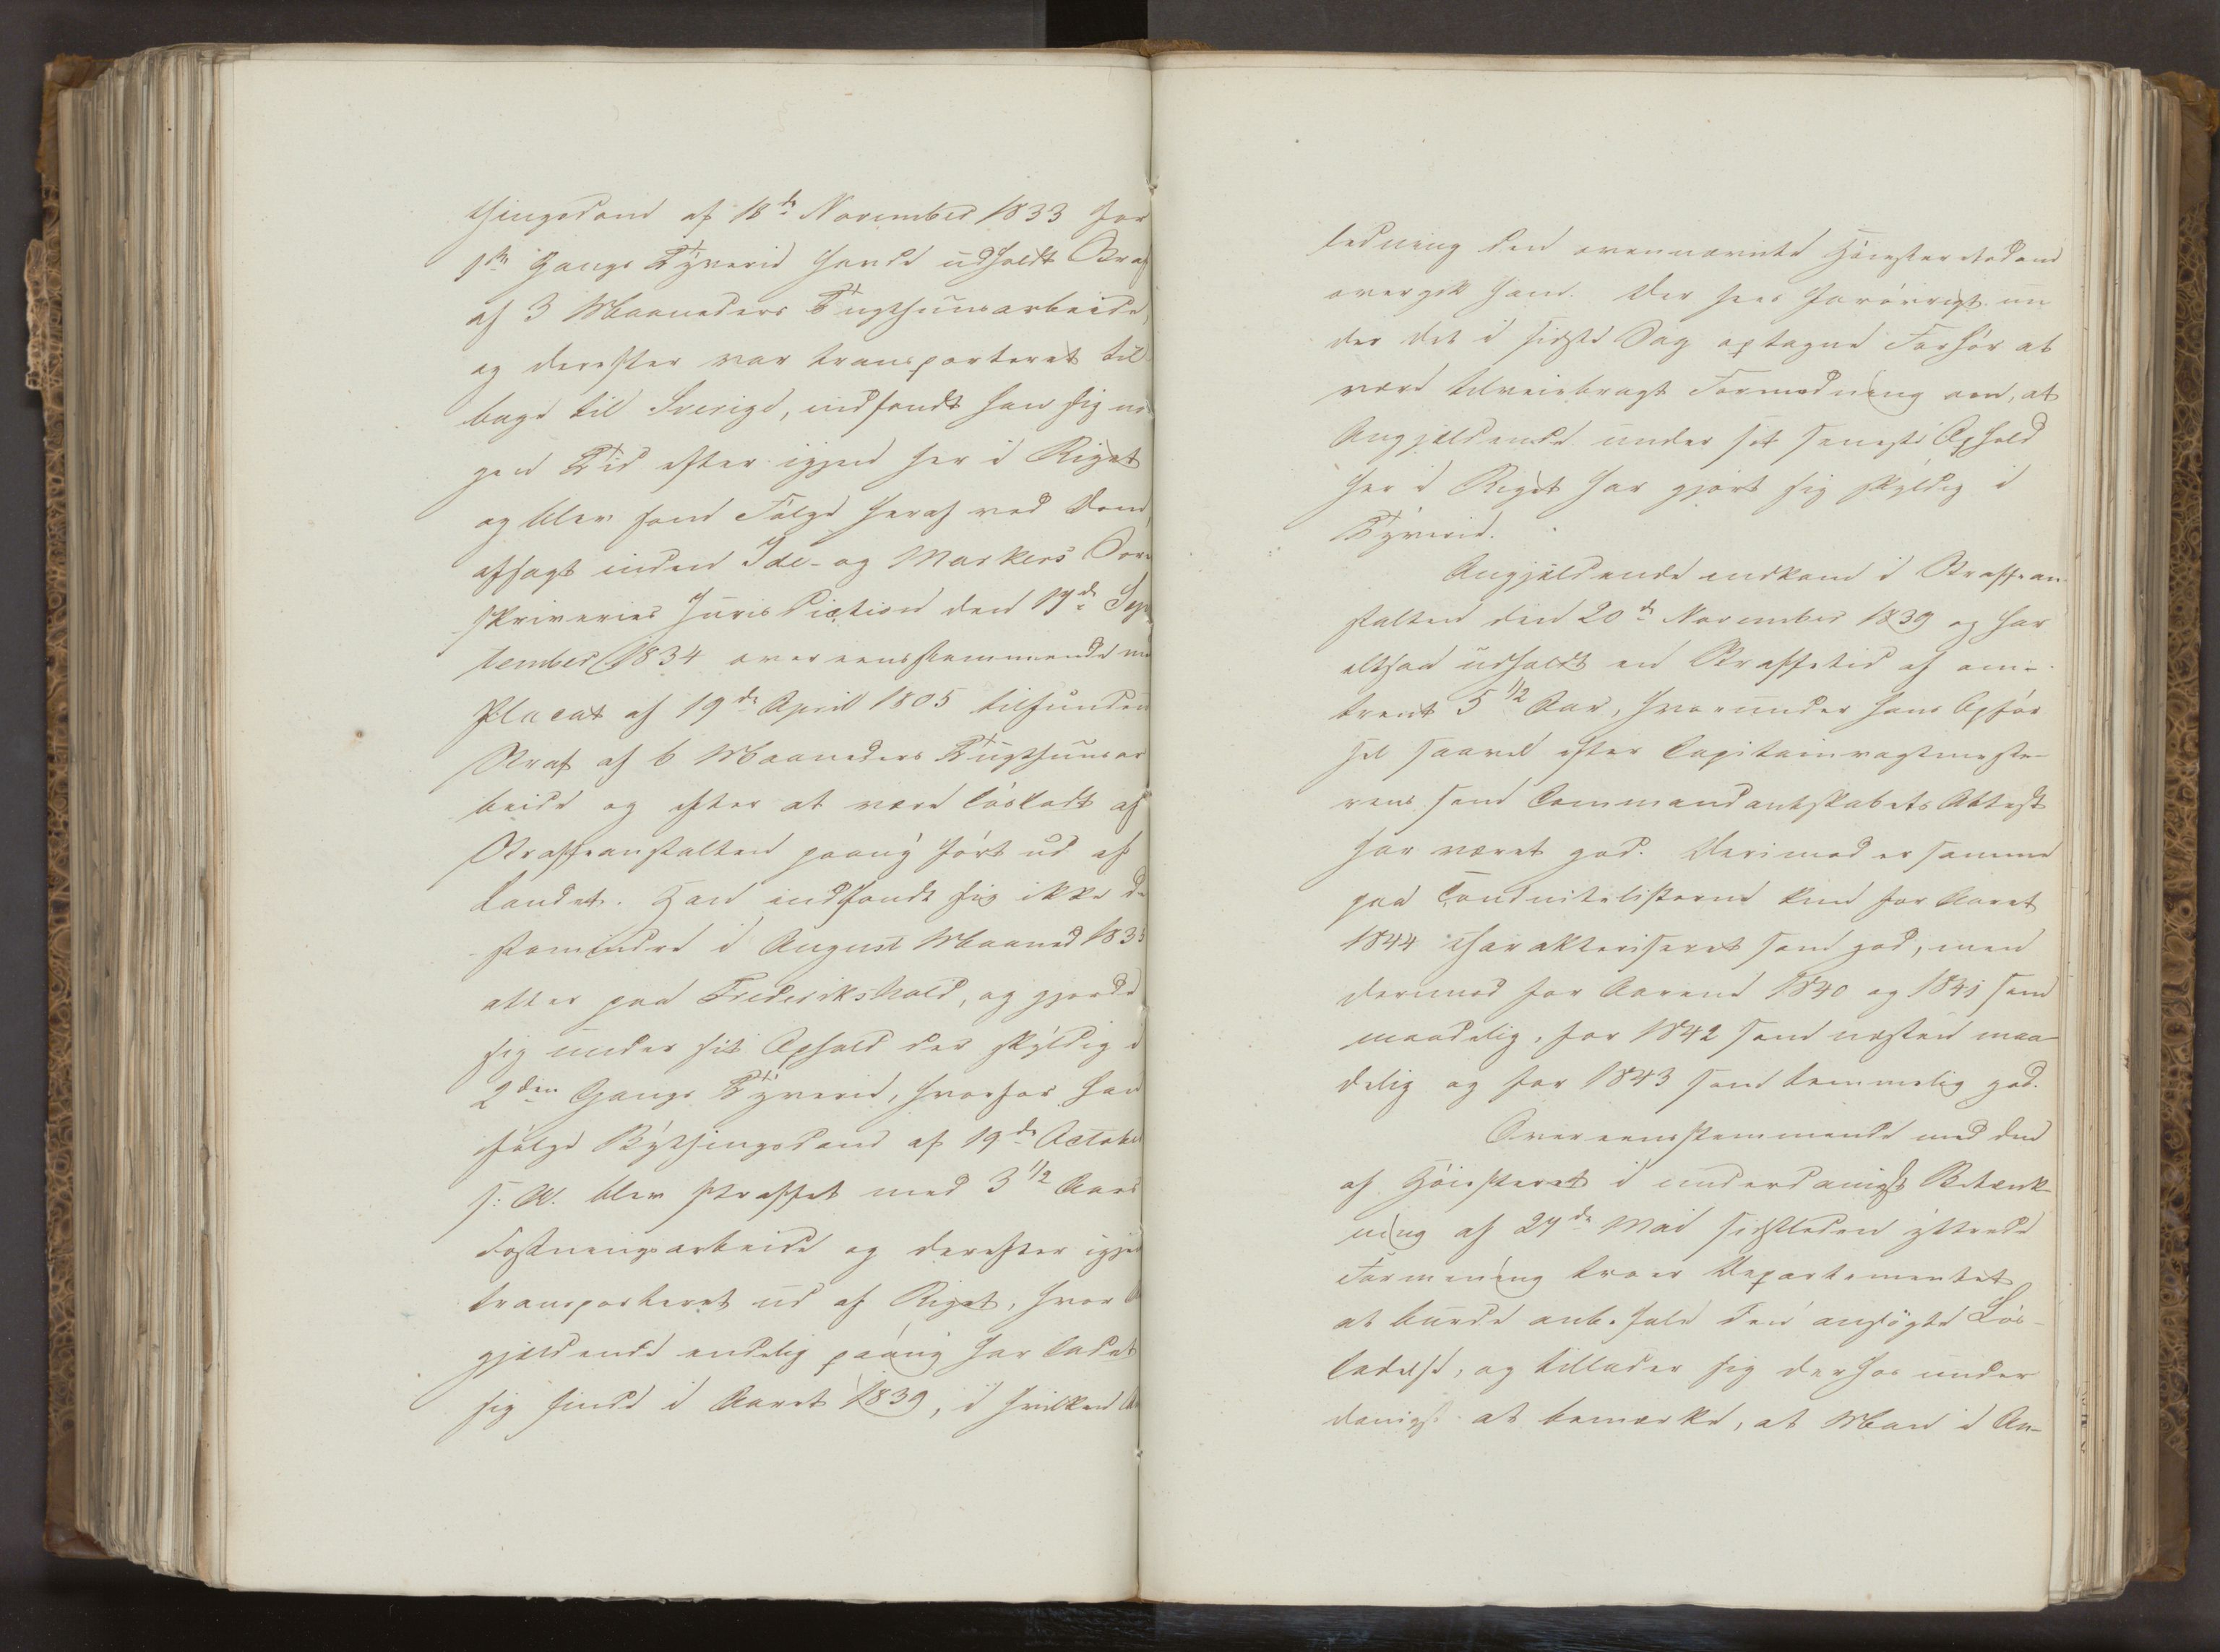 thingsdom af 18de November 1833 for
1ste Gangs Tyverie havde udholdt Straf
af 3 Maaneders Tugthuusarbeide,
og derefter var transporteret til
bage til Sverige, indfandt han sig no
gen Tid efter igjen her i Riget
og blev som Følge heraf ved Dom,
afsagt inden Ide- og Markers Sore
skriveries Jurisdiction den 17de Sep
tember 1834 overeensstemmende m
Placat af 19de April 1805 tilfunden
Straf af 6 Maaneders Tugthuusar
beide og efter at være løsladt af
Straffeanstalten paany ført ud af
Landet. Han indfandt sig ikke de
stomindre i August Maaned 1835
atter paa Frederikshald, og gjorde
sig under sit Ophold der skyldig i
2den Gangs Tyverie, hvorfor han
ifølge Bythingsdom af 19de October
s: A. blev straffet med 3 1/2 Aars
Fæstningsarbeide og derefter igjen
transporteret ud af Riget, hvor A
gjeldende endelig paany har ladet
sig finde i Aaret 1839, i hvilken A
ledning den ovennævnte Høiesteretsdom
overgik ham. Der sees forøvrigt un
der det i sidste Sag optagne Forhør at
være tilveiebragt Formodning om, at
Angjeldende under sit seneste Ophold
her i Riget har gjort sig skyldig i
Tyverie.
Angjeldende indkom i Straffean-
stalten den 20de November 1839 og har
altsaa udholdt en Straffetid af om-
trent 5 1/2 Aar, hvorunder hans Opfør
sel saavel efter Capitainvagtmeste-
rens som Commandantskabets Attest
har været god. Derimod er samme
paa Conduitelisterne kun for Aaret
1844 charakteriseret som god, men
derimod for Aarene 1840 og 1841 som
maadelig, for 1842 som næsten maa-
delig og for 1843 som temmelig god.
Overeensstemmende med den
af Høiesteret i underdanigst Betænk-
ning af 27de Mai sidstleden yttrede
Formening troer Departementet
at burde anbefale den ansøgte Løs-
ladelse, og tillader sig derhos under
danigst at bemærke, at Man i An-